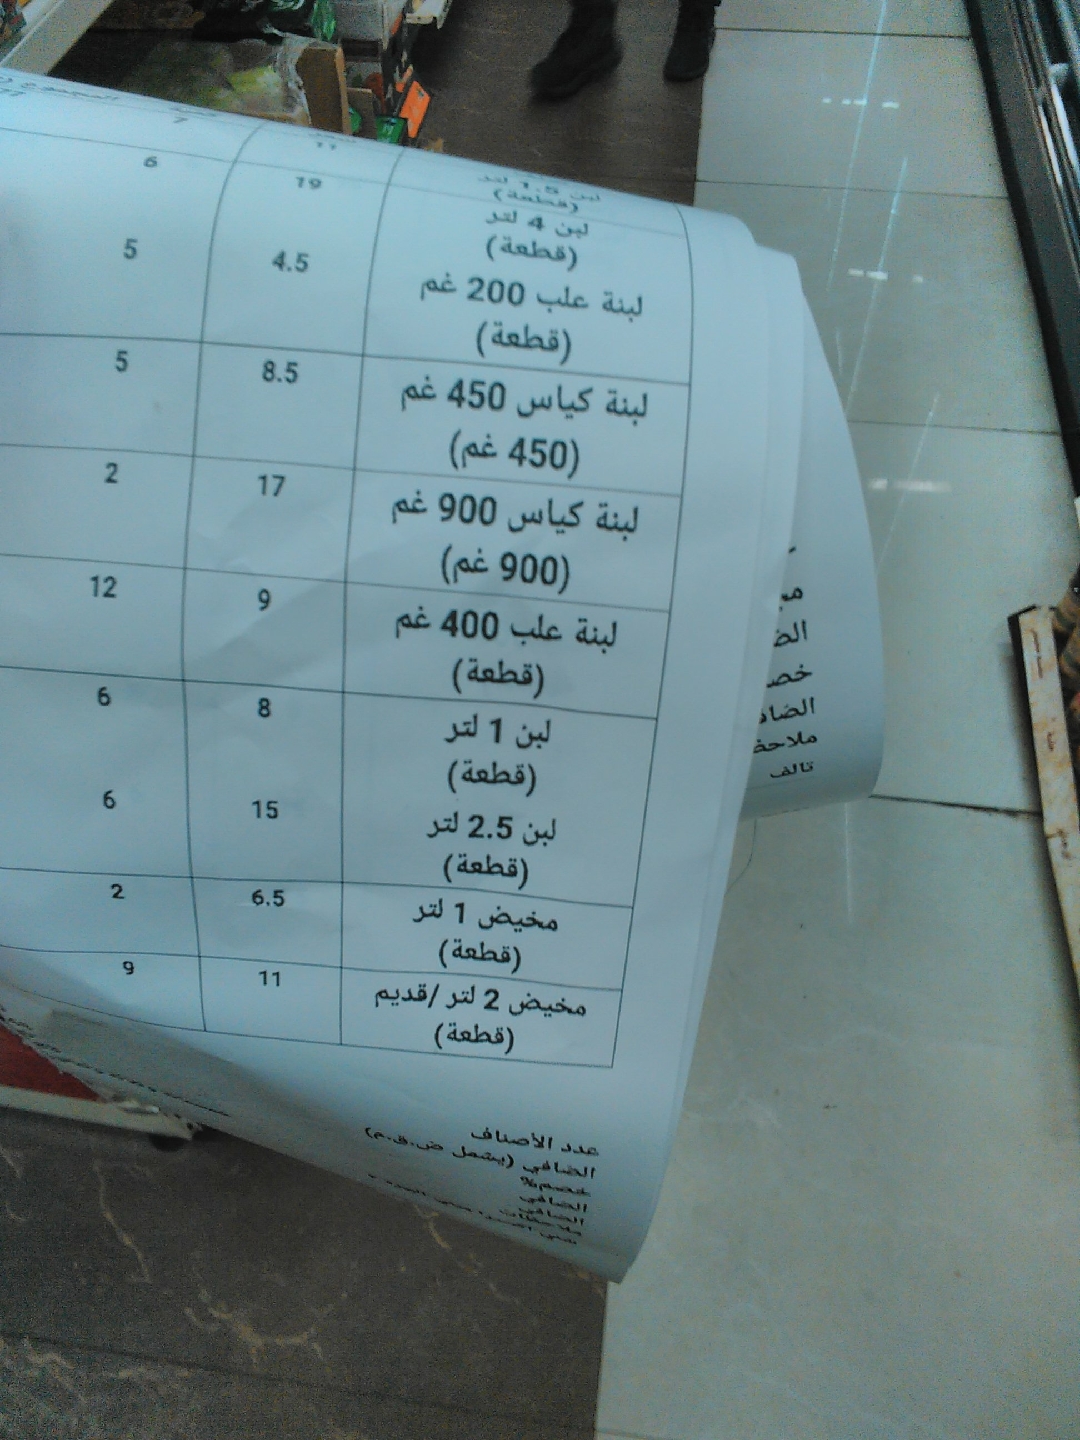 المجموع
7
11
لبن 1.5 لتر
(قطعة)
6
19
لبن 4 لتر
(قطعة)
5
4.5
لبنة علب 200 غم
(قطعة)
5
8.5
لبنة كياس 450 غم
(450 غم)
2
17
لبنة كياس 900 غم
(900 غم)
12
9
لبنة علب 400 غم
(قطعة)
6
8
لبن 1 لتر
(قطعة)
6
15
لبن 2.5 لتر
(قطعة)
2
6.5
مخيض 1 لتر
(قطعة)
9
11
مخيض 2 لتر /قديم
(قطعة)
عدد الأصناف
الضافي (يشمل ض.ق.م)
خصم%
الضافي
الضافي
ملاحظات
الض
خص
الضاف
ملاحظ
تالف